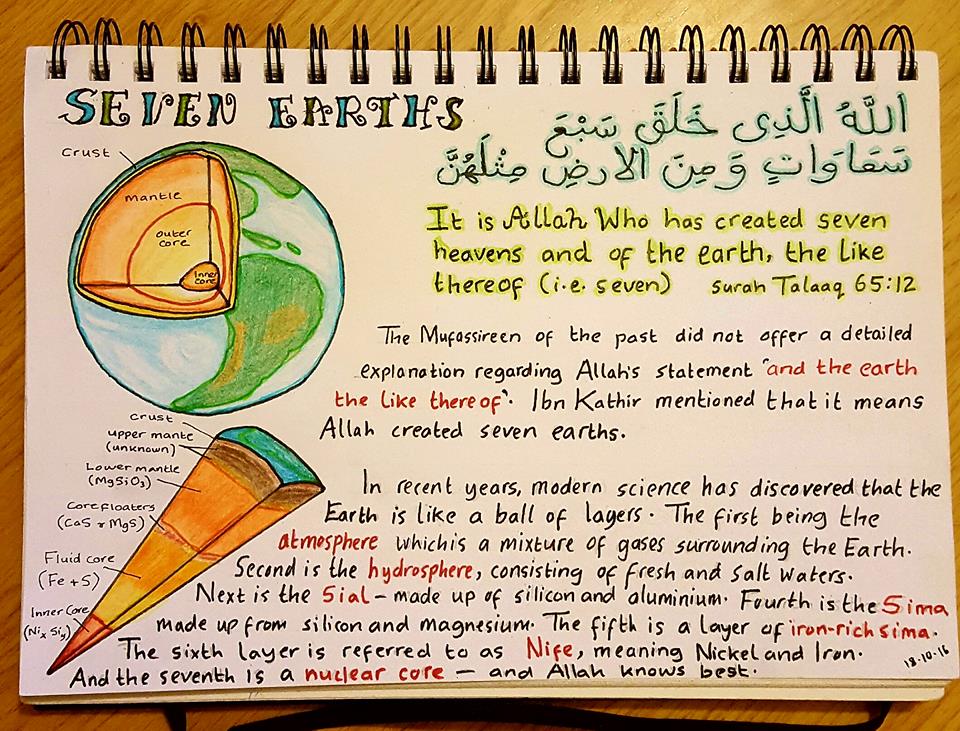 SEVEN EARTHS
اللهُ الَّذِى خَلَقَ سَبْعَ
سَمَاوَاتٍ وَمِنَ الارضِ مِثْلَهُنَّ
It is Allah Who has created seven
heavens and of the earth, the like
thereof (i.e. seven) Surah Talaaq 65:12
Crust
mantle
outer
core
Inner
core
The Mufassireen of the past did not offer a detailed
explanation regarding Allah's statement "and the earth
the like thereof". Ibn Kathir mentioned that it means
Allah created seven earths.
crust
upper mantle
(unknown)
Lower mantle
(MgSiO3)
Core floaters
(CaS + MgS)
Fluid core
(Fe + S)
Inner Core
(Nix Siy)
In recent years, modern science has discovered that the
Earth is like a ball of layers. The first being the
atmosphere which is a mixture of gases surrounding the Earth.
Second is the hydrosphere, consisting of fresh and salt waters.
Next is the Sial - made up of silicon and aluminium. Fourth is the Sima
made up from silicon and magnesium. The fifth is a layer of iron-rich sima.
The sixth layer is referred to as Nife, meaning Nickel and Iron.
And the seventh is a nuclear core - and Allah knows best.
13.10.16